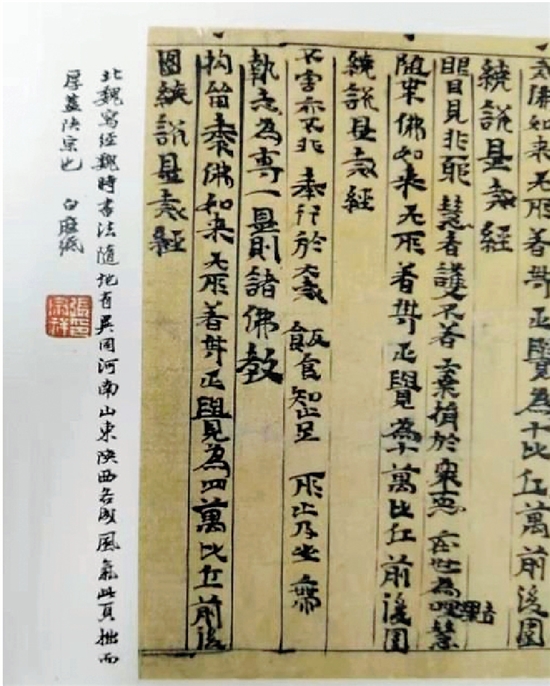 佛如来无所著等正覺為十比丘前後圍
繞說是戒經
眼見非耶 慧者護不著 棄捐於衆惡 在世為黠慧
隨葉佛如来无所著等正覺為十萬比丘前後圍
繞說是戒經
不害亦不非 奉行於大戒 飯食知止足 所止乃坐席
執志為專一 是則諸佛教
拘留秦佛如来无所著等正覺為四萬比丘前後
圍繞說是戒經
北魏寫經魏時書法隨地有異同河南山東陝西各成風氣此頁拙而
厚蓋陝宗也 白麻紙
張宗祥印